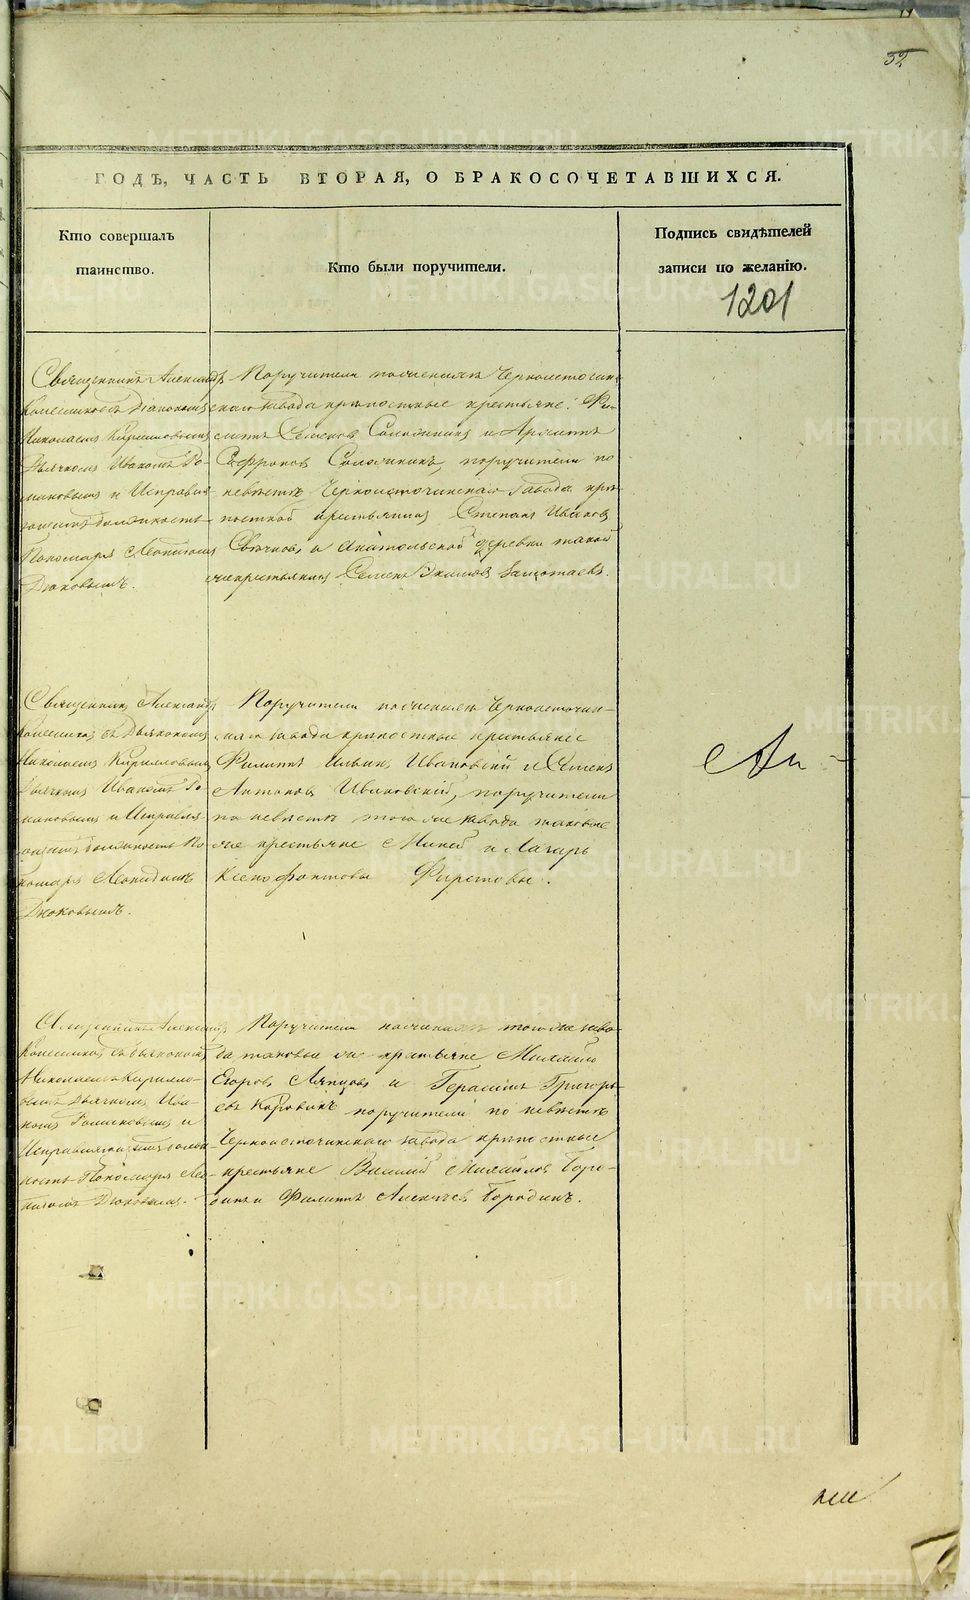 32
ГОДЪ, ЧАСТЬ ВТОРАЯ, О БРАКОСОЧЕТАВШИХСЯ.
Кто совершалъ
таинство.
Кто были поручители.
Подпись свидѣтелей
записи по желанію.
1201
Священникъ Александръ
Колесниковъ Дьякономъ
Николаемъ Кирилловымъ
Дьячкомъ Иваномъ Ро-
мановымъ и Исправля
ющимъ должность
Пономаря Леонидомъ
Дюковымъ.
Поручители по женихѣ Черноисточин
скаго Завода крѣпостные крестьяне: Фи-
Семенов и
Софронов поручители по
невѣстѣ Черноисточинскаго Завода крѣ
постной крестьянинъ Степанъ Иванов
и Анатольской деревни такой
же крестьянинъ Семенъ
Священникъ Александръ
Колесников съ Дьякономъ
Николаемъ Кирилловымъ
Дьячкомъ Иваномъ Ро
мановымъ и Исправля
ющимъ должность По
номаря Леонидомъ
Дюковымъ.
Поручители по женихѣ Черноисточин-
скаго завода крѣпостные крестьяне
Филиппъ Ильинъ Ивановскій и Семенъ
Антонов Ивановскій, поручители
по невѣстѣ того же завода таковые
же крестьяне Михей и Лазарь
Ксенофонтовы Фирстовы.
Священникъ Александръ
Колесников съ Дьякономъ
Николаемъ Кирилло-
вымъ Дьячкомъ Ива-
номъ Романовымъ и
Исправляющимъ долж-
ность Пономаря Лео
нидомъ Дюковымъ.
Поручители по женихѣ того же заво-
да таковые же крестьяне Михайло
Егоров и Герасимъ Григорь
евъ Коровинъ поручители по невѣстѣ
Черноисточинскаго завода крѣпостные
крестьяне Василій Михайлов Боро-
динъ и Филиппъ Алексѣев Бородинъ.
METRIKI.GASO-URAL.RU